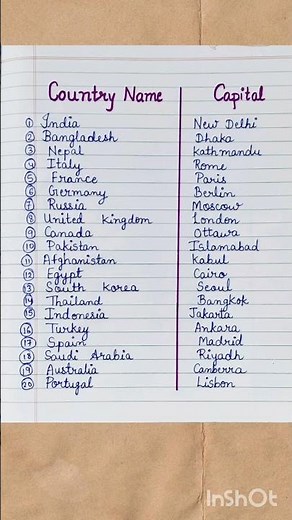 Country Name Capital
1 India New Delhi
2 Bangladesh Dhaka
3 Nepal Kathmandu
4 Italy Rome
5 France Paris
6 Germany Berlin
7 Russia Moscow
8 United Kingdom London
9 Canada Ottawa
10 Pakistan Islamabad
11 Afghanistan Kabul
12 Egypt Cairo
13 South Korea Seoul
14 Thailand Bangkok
15 Indonesia Jakarta
16 Turkey Ankara
17 Spain Madrid
18 Saudi Arabia Riyadh
19 Australia Canberra
20 Portugal Lisbon
InShOt